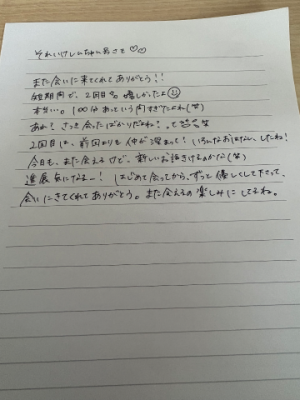 それいけしんちゃんあさて♡♡
また会いに来てくれてありがとう!!
短期間で、2回目も。嬉しかったよ
本当…。100分あっという間すぎたよね(笑)
あれ?さっき会ったばかりだよね?って
2回目は、前回よりも仲が深まって!いろんなお話、したね!
今日も、また会えるけど、新しいお話きけるのかな(笑)
進展気になるー!はじめて会ってから、ずっと優しくして下さって、
会いにきてくれてありがとう。また会えるの楽しみにしてるね。